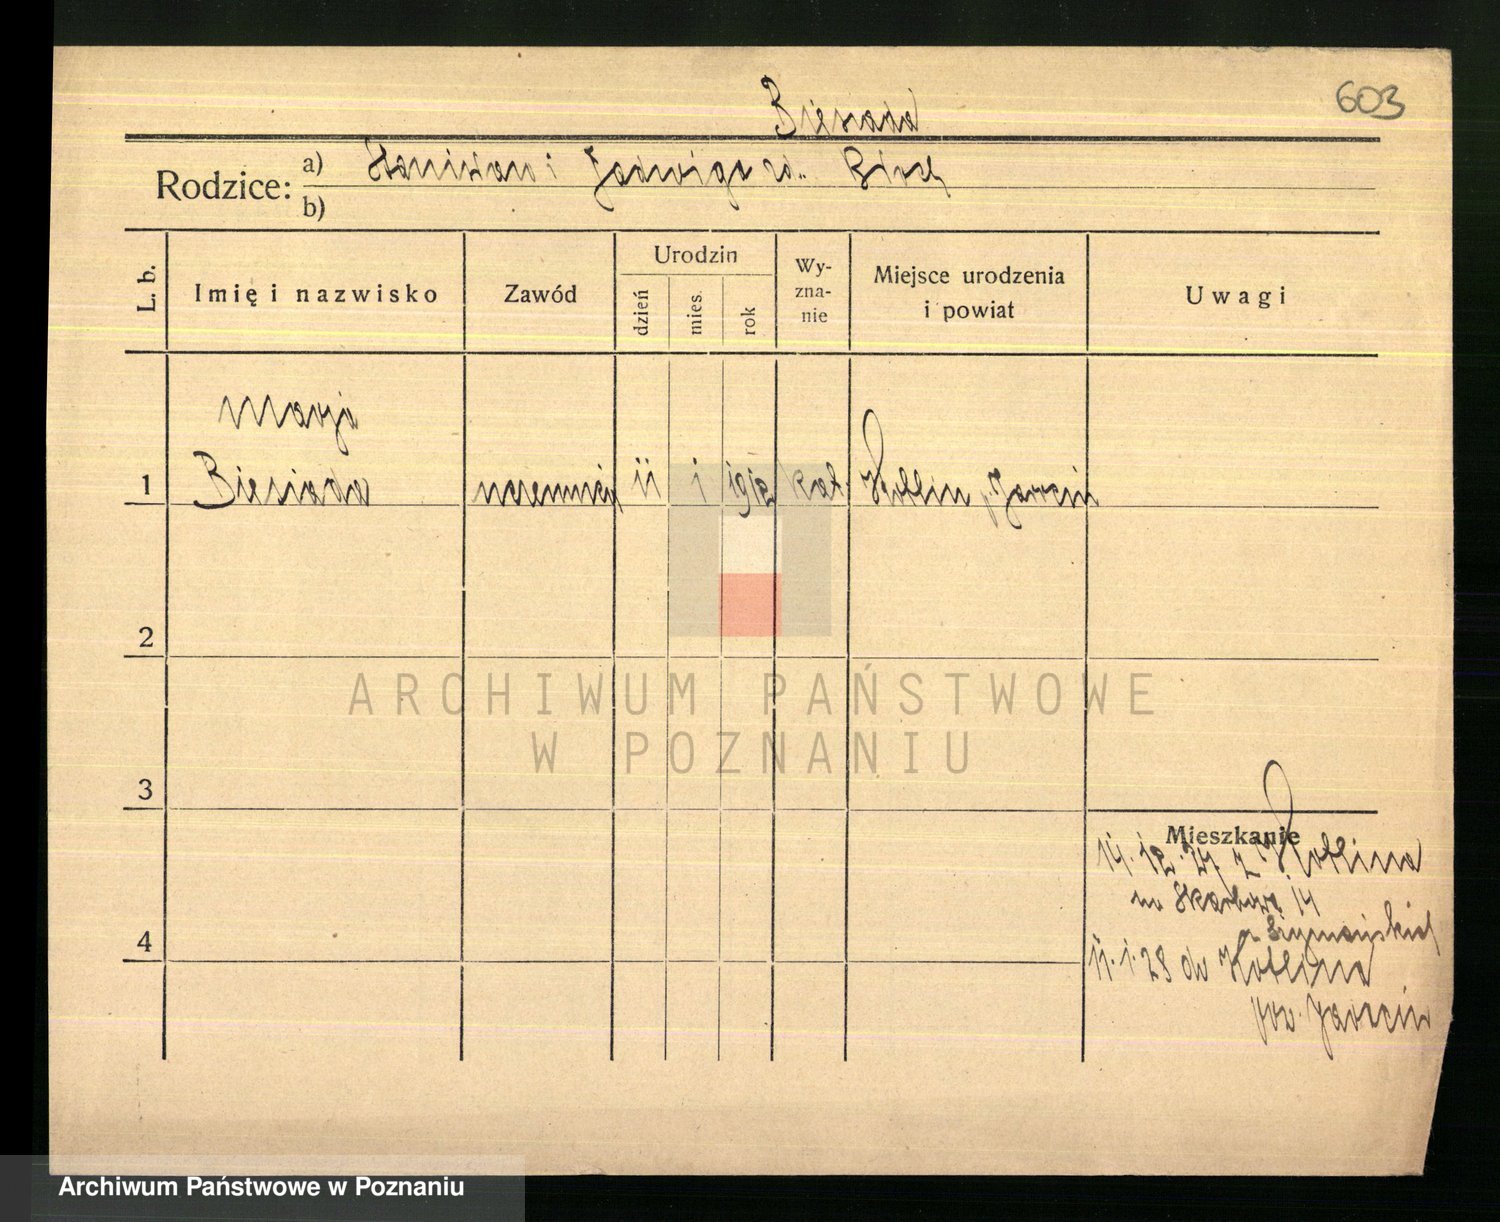 603
Biesiada
Rodzice: a) Stanisław i Jadwiga zd.
b)
L. b. Imię i nazwisko Zawód Urodzin dzień mies. rok Wyznanie Miejsce urodzenia i powiat Uwagi
Marja
1 Biesiada uczennica 11 1 1912 kat. Kotlin p. Jarocin
2
ARCHIWUM PAŃSTWOWE
W POZNANIU
3
Mieszkanie
14.12.27. z Kotlina
na Skarbową 14
u Szymańskich
4
11.1.28 do Kotlina
pow. Jarocin
Archiwum Państwowe w Poznaniu